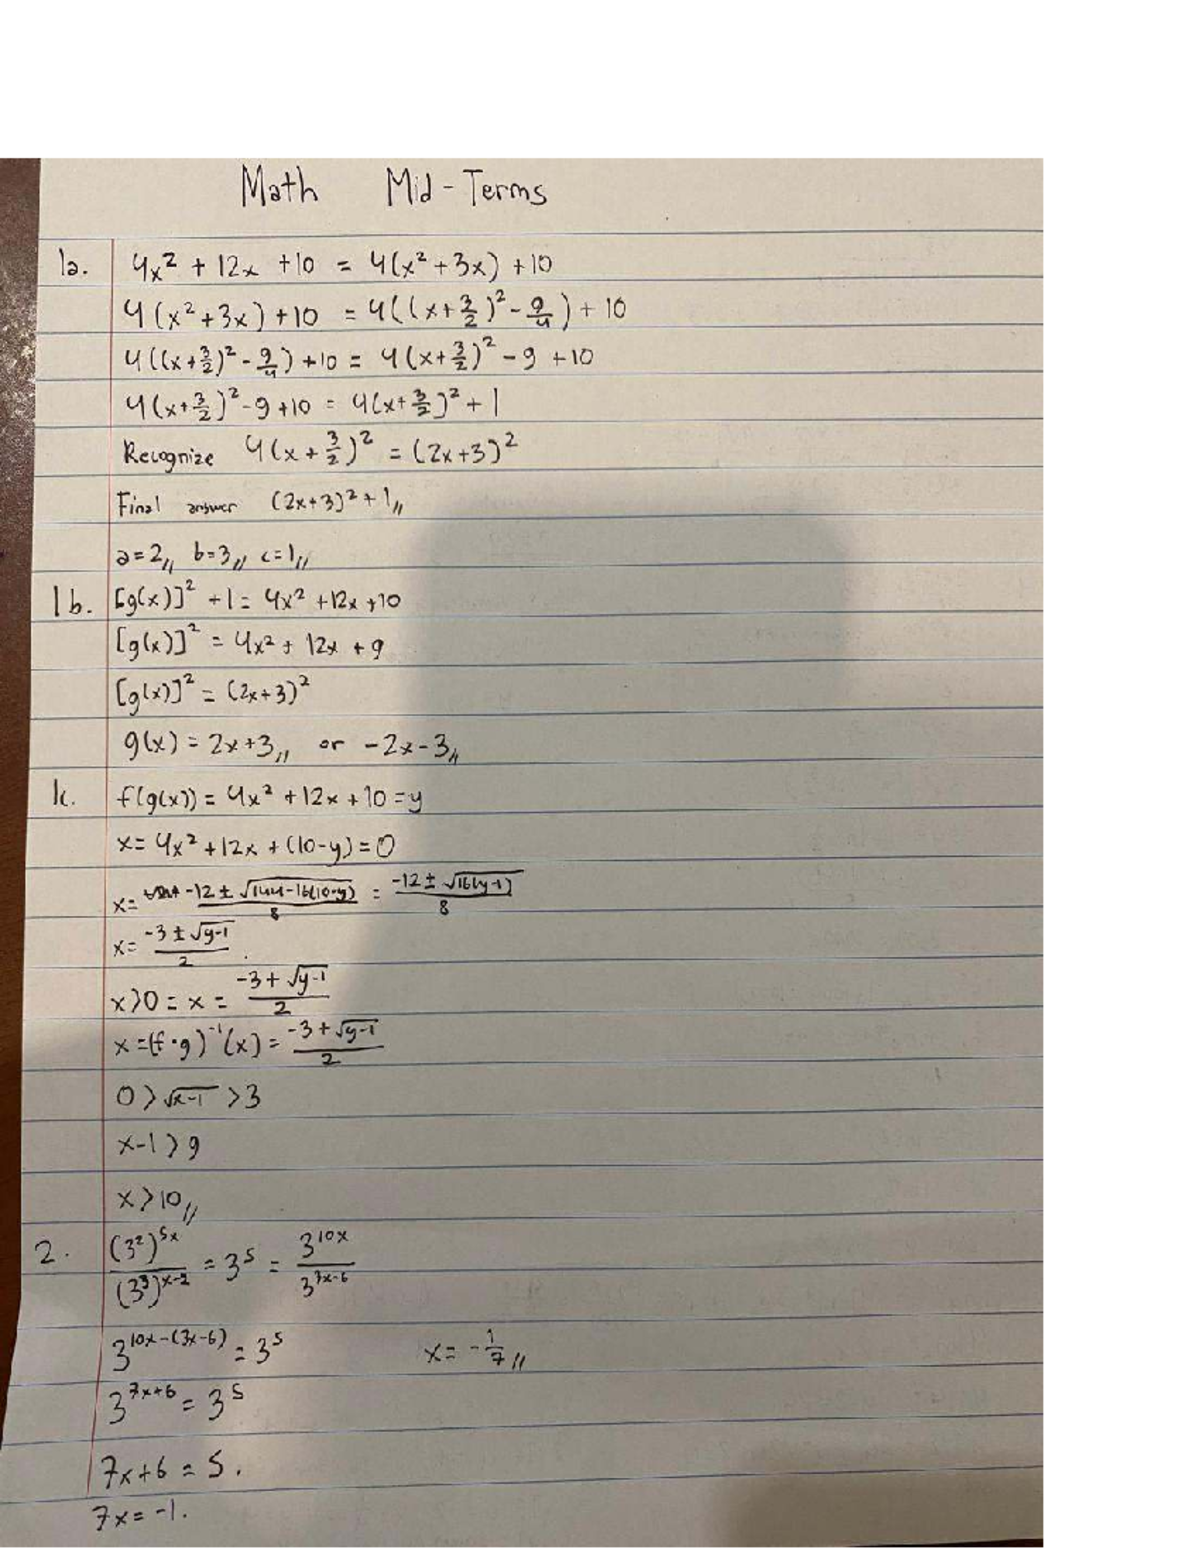 Math Mid-Terms
1a. 4x² + 12x + 10 = 4(x² + 3x) + 10
4(x² + 3x) + 10 = 4((x + 3/2)² - 9/4) + 10
4((x + 3/2)² - 9/4) + 10 = 4(x + 3/2)² - 9 + 10
4(x + 3/2)² - 9 + 10 = 4(x + 3/2)² + 1
Recognize 4(x + 3/2)² = (2x+3)²
Final answer (2x+3)² + 1//
a=2// b=3// c=1//
1b. [g(x)]² + 1 = 4x² + 12x + 10
[g(x)]² = 4x² + 12x + 9
[g(x)]² = (2x+3)²
g(x) = 2x+3// or -2x-3//
1c. f(g(x)) = 4x² + 12x + 10 = y
x = 4x² + 12x + (10-y) = 0
x = -12 ± √(144-16(10-y)) / 8 = -12 ± √(16(y-1)) / 8
x = -3 ± √(y-1) / 2
x>0 = x = -3 + √(y-1) / 2
x = (f∘g)⁻¹(x) = -3 + √(y-1) / 2
0 > √(x-1) > 3
x-1 > 9
x > 10//
2. (3²)^5x / (3³)^x-2 = 3⁵ = 3^10x / 3^3x-6
3^10x-(3x-6) = 3⁵ x = -1/7//
3^7x+6 = 3⁵
7x+6 = 5.
7x = -1.